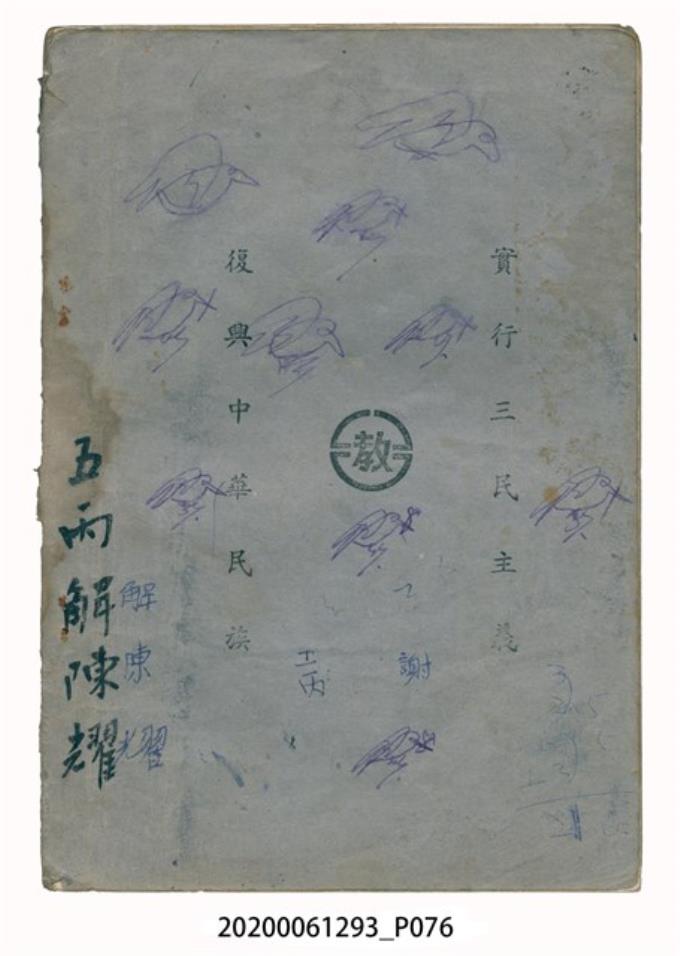 實行三民主義
復興中華民族
教
謝
五丙解陳耀
解陳耀
20200061293_P076